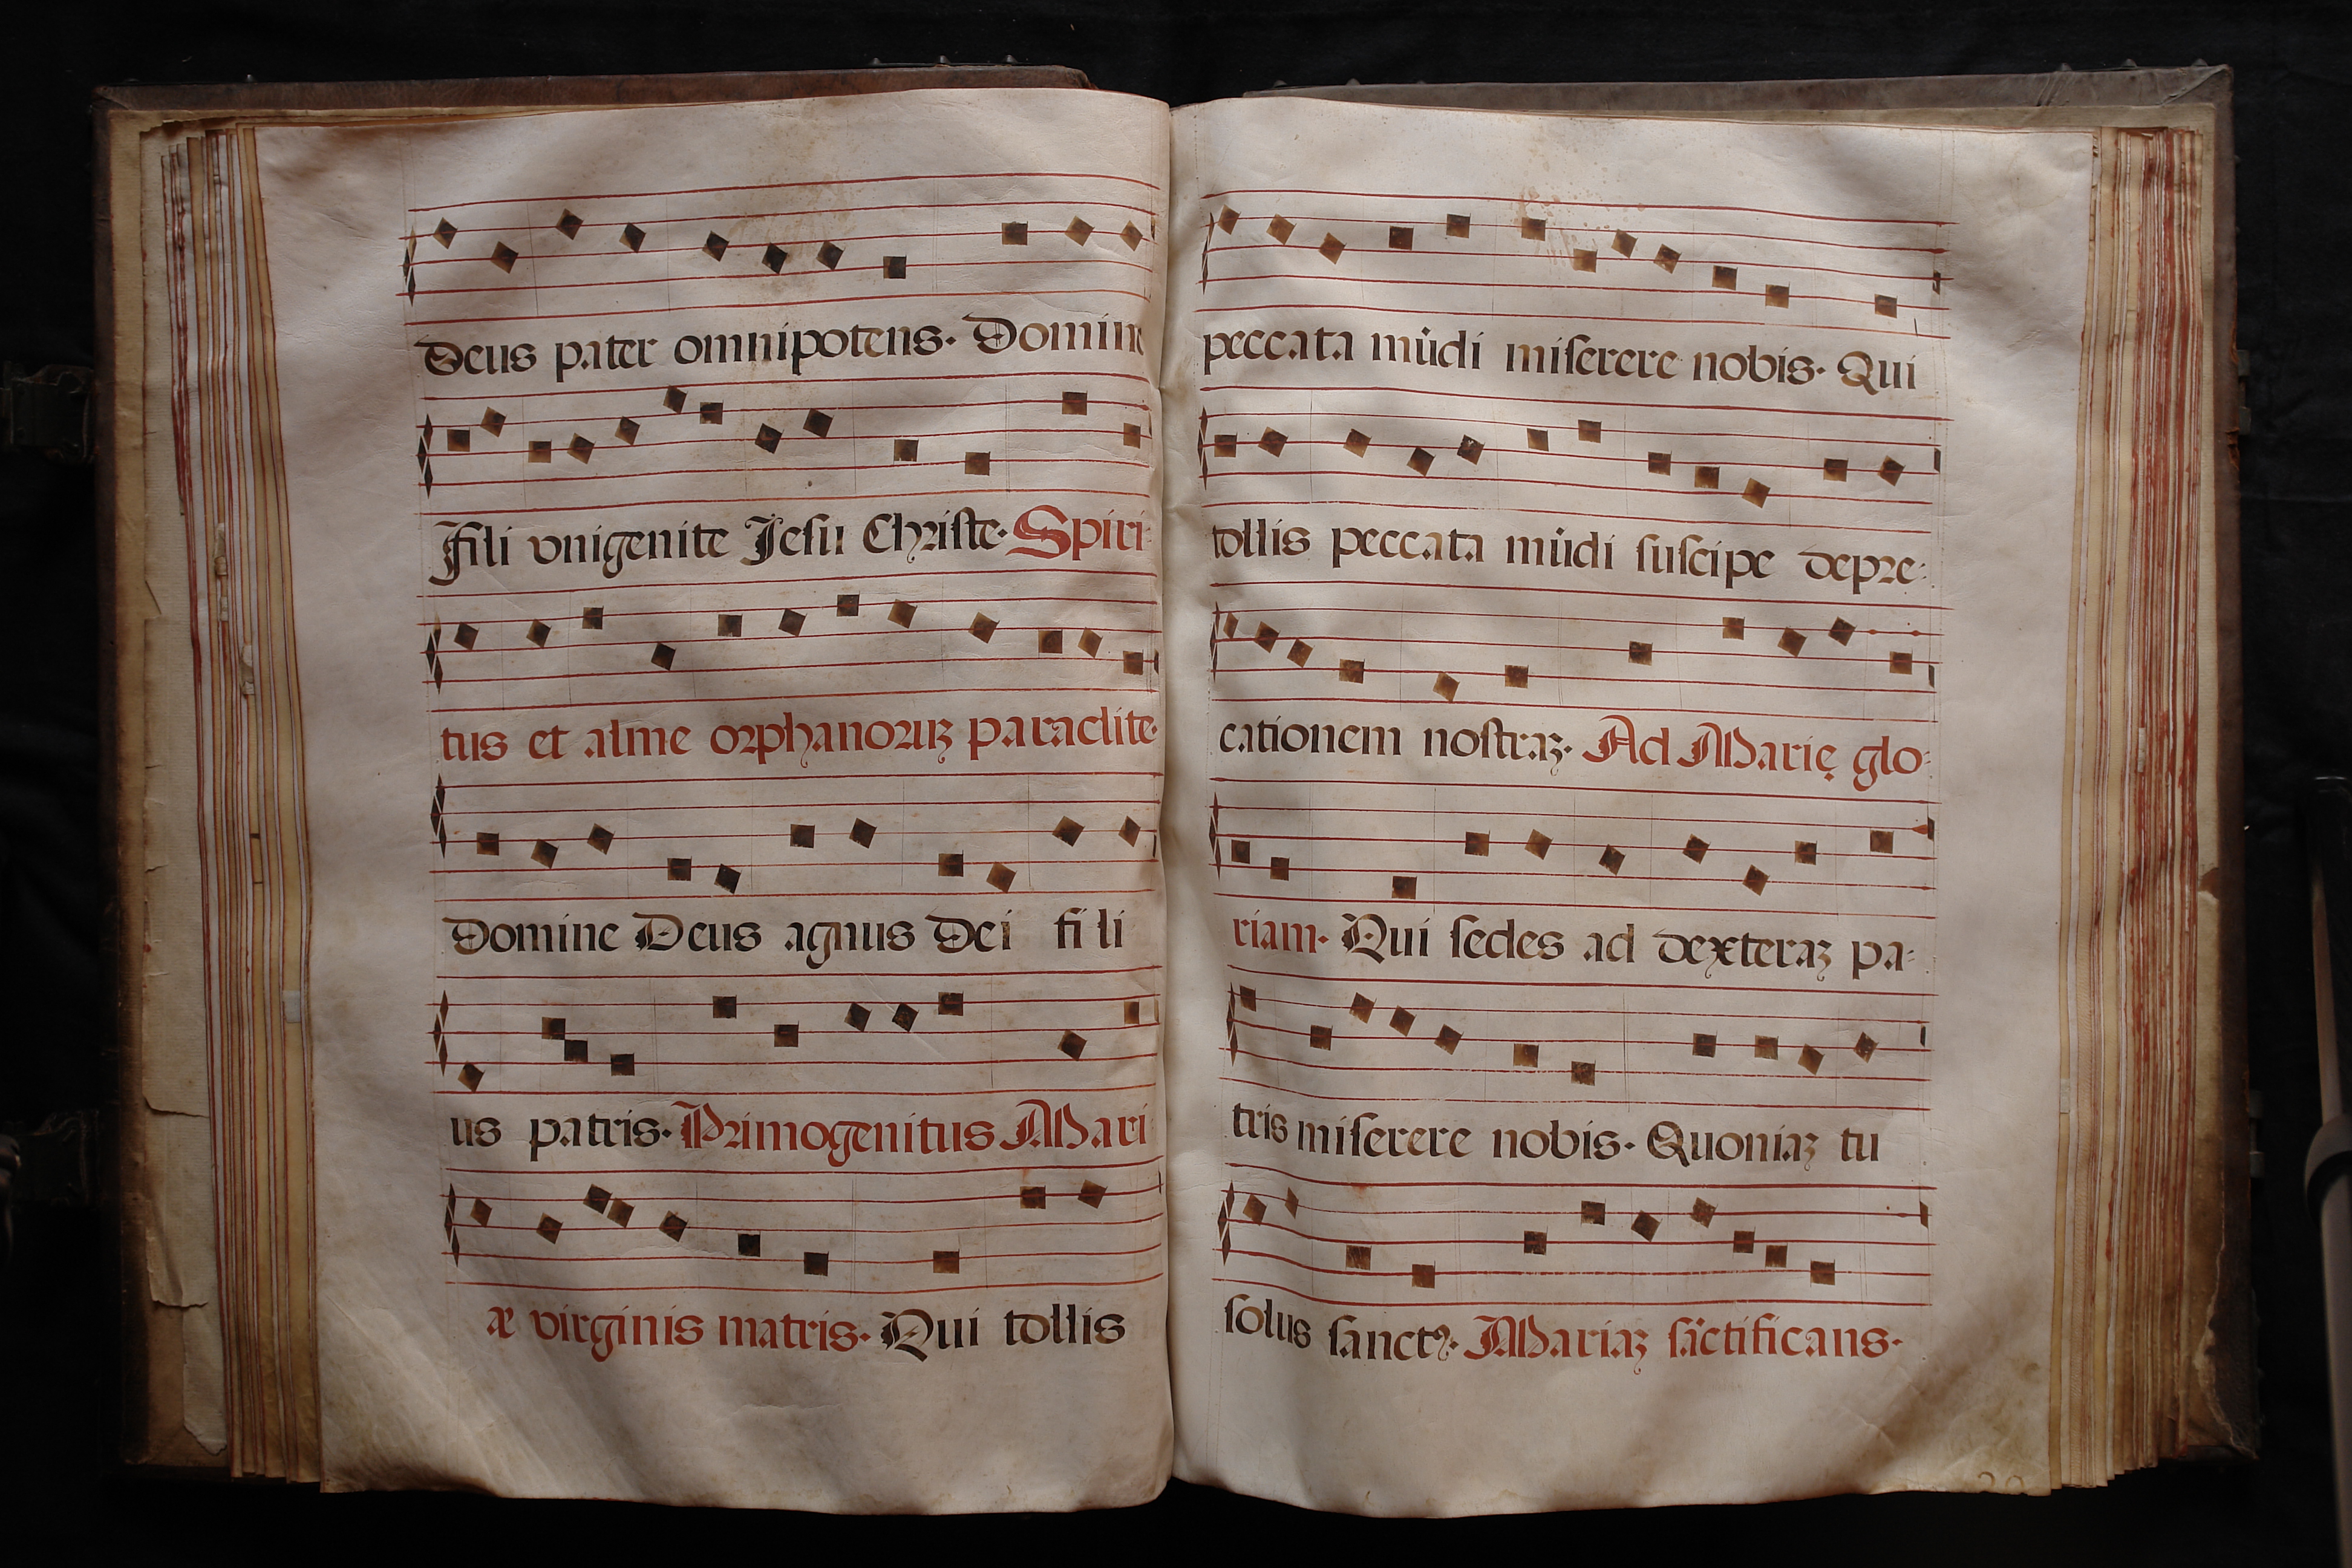 Deus pater omnipotens. Domine
Fili vnigenite Jesu Christe. Spiri
tus et alme orphanoruꝫ paraclite.
Domine Deus agnus Dei fili
us patris. Primogenitus Mari
æ virginis matris. Qui tollis
peccata mūdi miſerere nobis. Qui
tollis peccata mūdi ſuſcipe depre-
cationem noſtraꝫ. Ad Marię glo-
riam. Qui ſedes ad dexteraꝫ pa-
tris miſerere nobis. Quoniaꝫ tu
ſolus ſanctꝰ. Mariaꝫ ſāctificans.